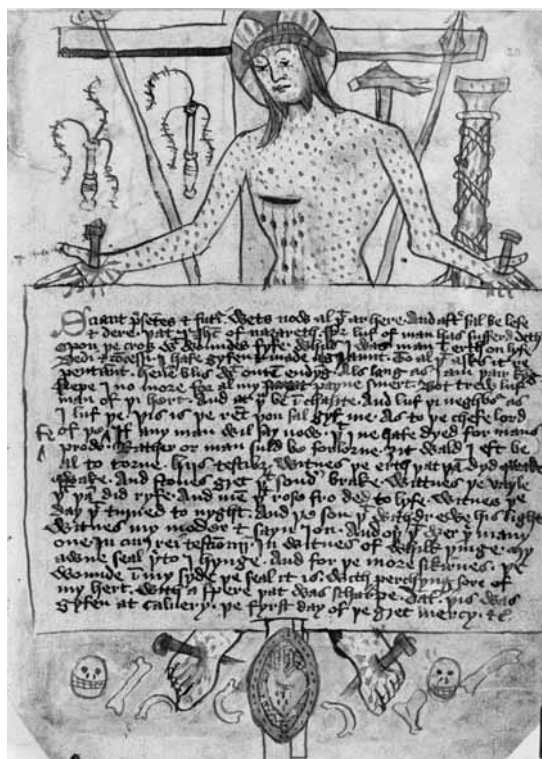 Sciant p̄setes & futi. Wets now al þᵗ ar here. And aft sal be lefe
& dere. þat I ihc of nazareth. ffor luf of man has sufferd deth
Opon þe cros wᵗ woundes fyfe. Whils I was man ī erth on lyfe
Dedi & cōcessi. I hafe gyfen & made a graunt. To al þᵗ askes it re
pentant. heuen blis wᵗ outen endyg. Als lang as I am þair kyng
Kepe I no more for al my payne smert. Bot trew lufe
man of þi hert. And at þᵘ be ī charite. And luf þi neghbor as
I luf þe. þis is þe rēt þou sal gyf me. As to þe chefe lord
fe
of If any man wil say now. þᵗ I ne hafe dyed for mans
prow. Rather or man suld be forlorne. ȝit wald I eft be
al to torne. hijs testibȝ. Witnes þe erth þat þā dyd qwake
And stones gret þᵗ sond brake. Wittnes þe vayle
þᵗ þā did ryfe. And mē þᵗ rose fro ded to lyfe. Witnes þe
day þᵗ turned to nyght. And þe son þᵗ withdrewe his light
Witnes my moder & saynt Ion. And oþ þᵗ wer þ many
one. In cuius rei testīonij. In witnes of whilk þinge. My
awne seal þto I hynge. And for þe more sikirnes. þe
wounde ī my syde þe seal it is. With perchyng sore of
my hert. With a spere þat was scharpe. Dat. þis was
gyfen at caluery. þe fyrst day of þe gret mercy. &c